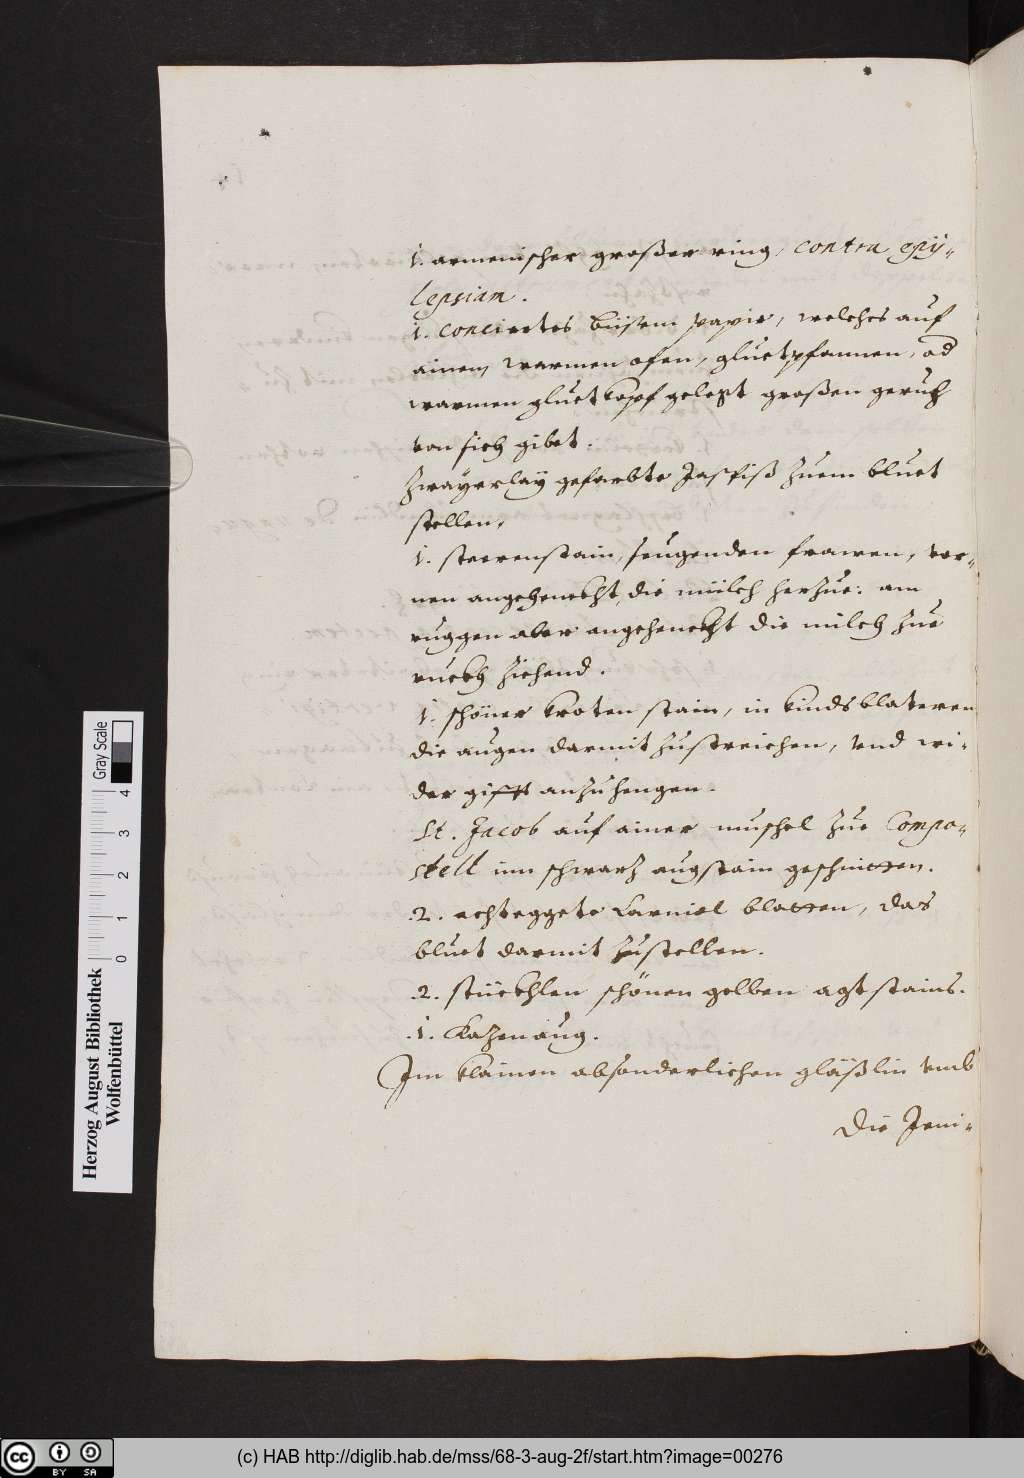 1. armenischer großer ring, contra epÿ-
lepsiam.
1. conciertes bisem papir, welches auf
ainem warmen ofen, gluetpfannen, od
warmen gluetkopf gelegt großen geruch
von sich gibet.
Zwayerlaÿ gefarbte Jaspiß zuem bluet
stellen.
1. steerenstain, seugenden frawen, vor-
nen angehenckht, die milch herzue: am
ruggen aber angehenckht die milch zue
ruckh ziehend.
1. schöner kroten stain, in kindsblateren
die augen darmit zustreichen, vnd wi-
der gifft anzuhengen.
St. Jacob auf ainer muschel zue Compo-
stell inn schwarz augstain geschnitten.
.2. achteggete Carniol blatten, das
bluet darmit zustellen.
.2. stückhlen schönen gelben agtstains.
.1. Kazenaug.
Im klainen absonderlichen gläßlin vmb
die Jeni-
Herzog August Bibliothek
Wolfenbüttel
Gray Scale
0 1 2 3 4
cc BY SA
(c) HAB http://diglib.hab.de/mss/68-3-aug-2f/start.htm?image=00276